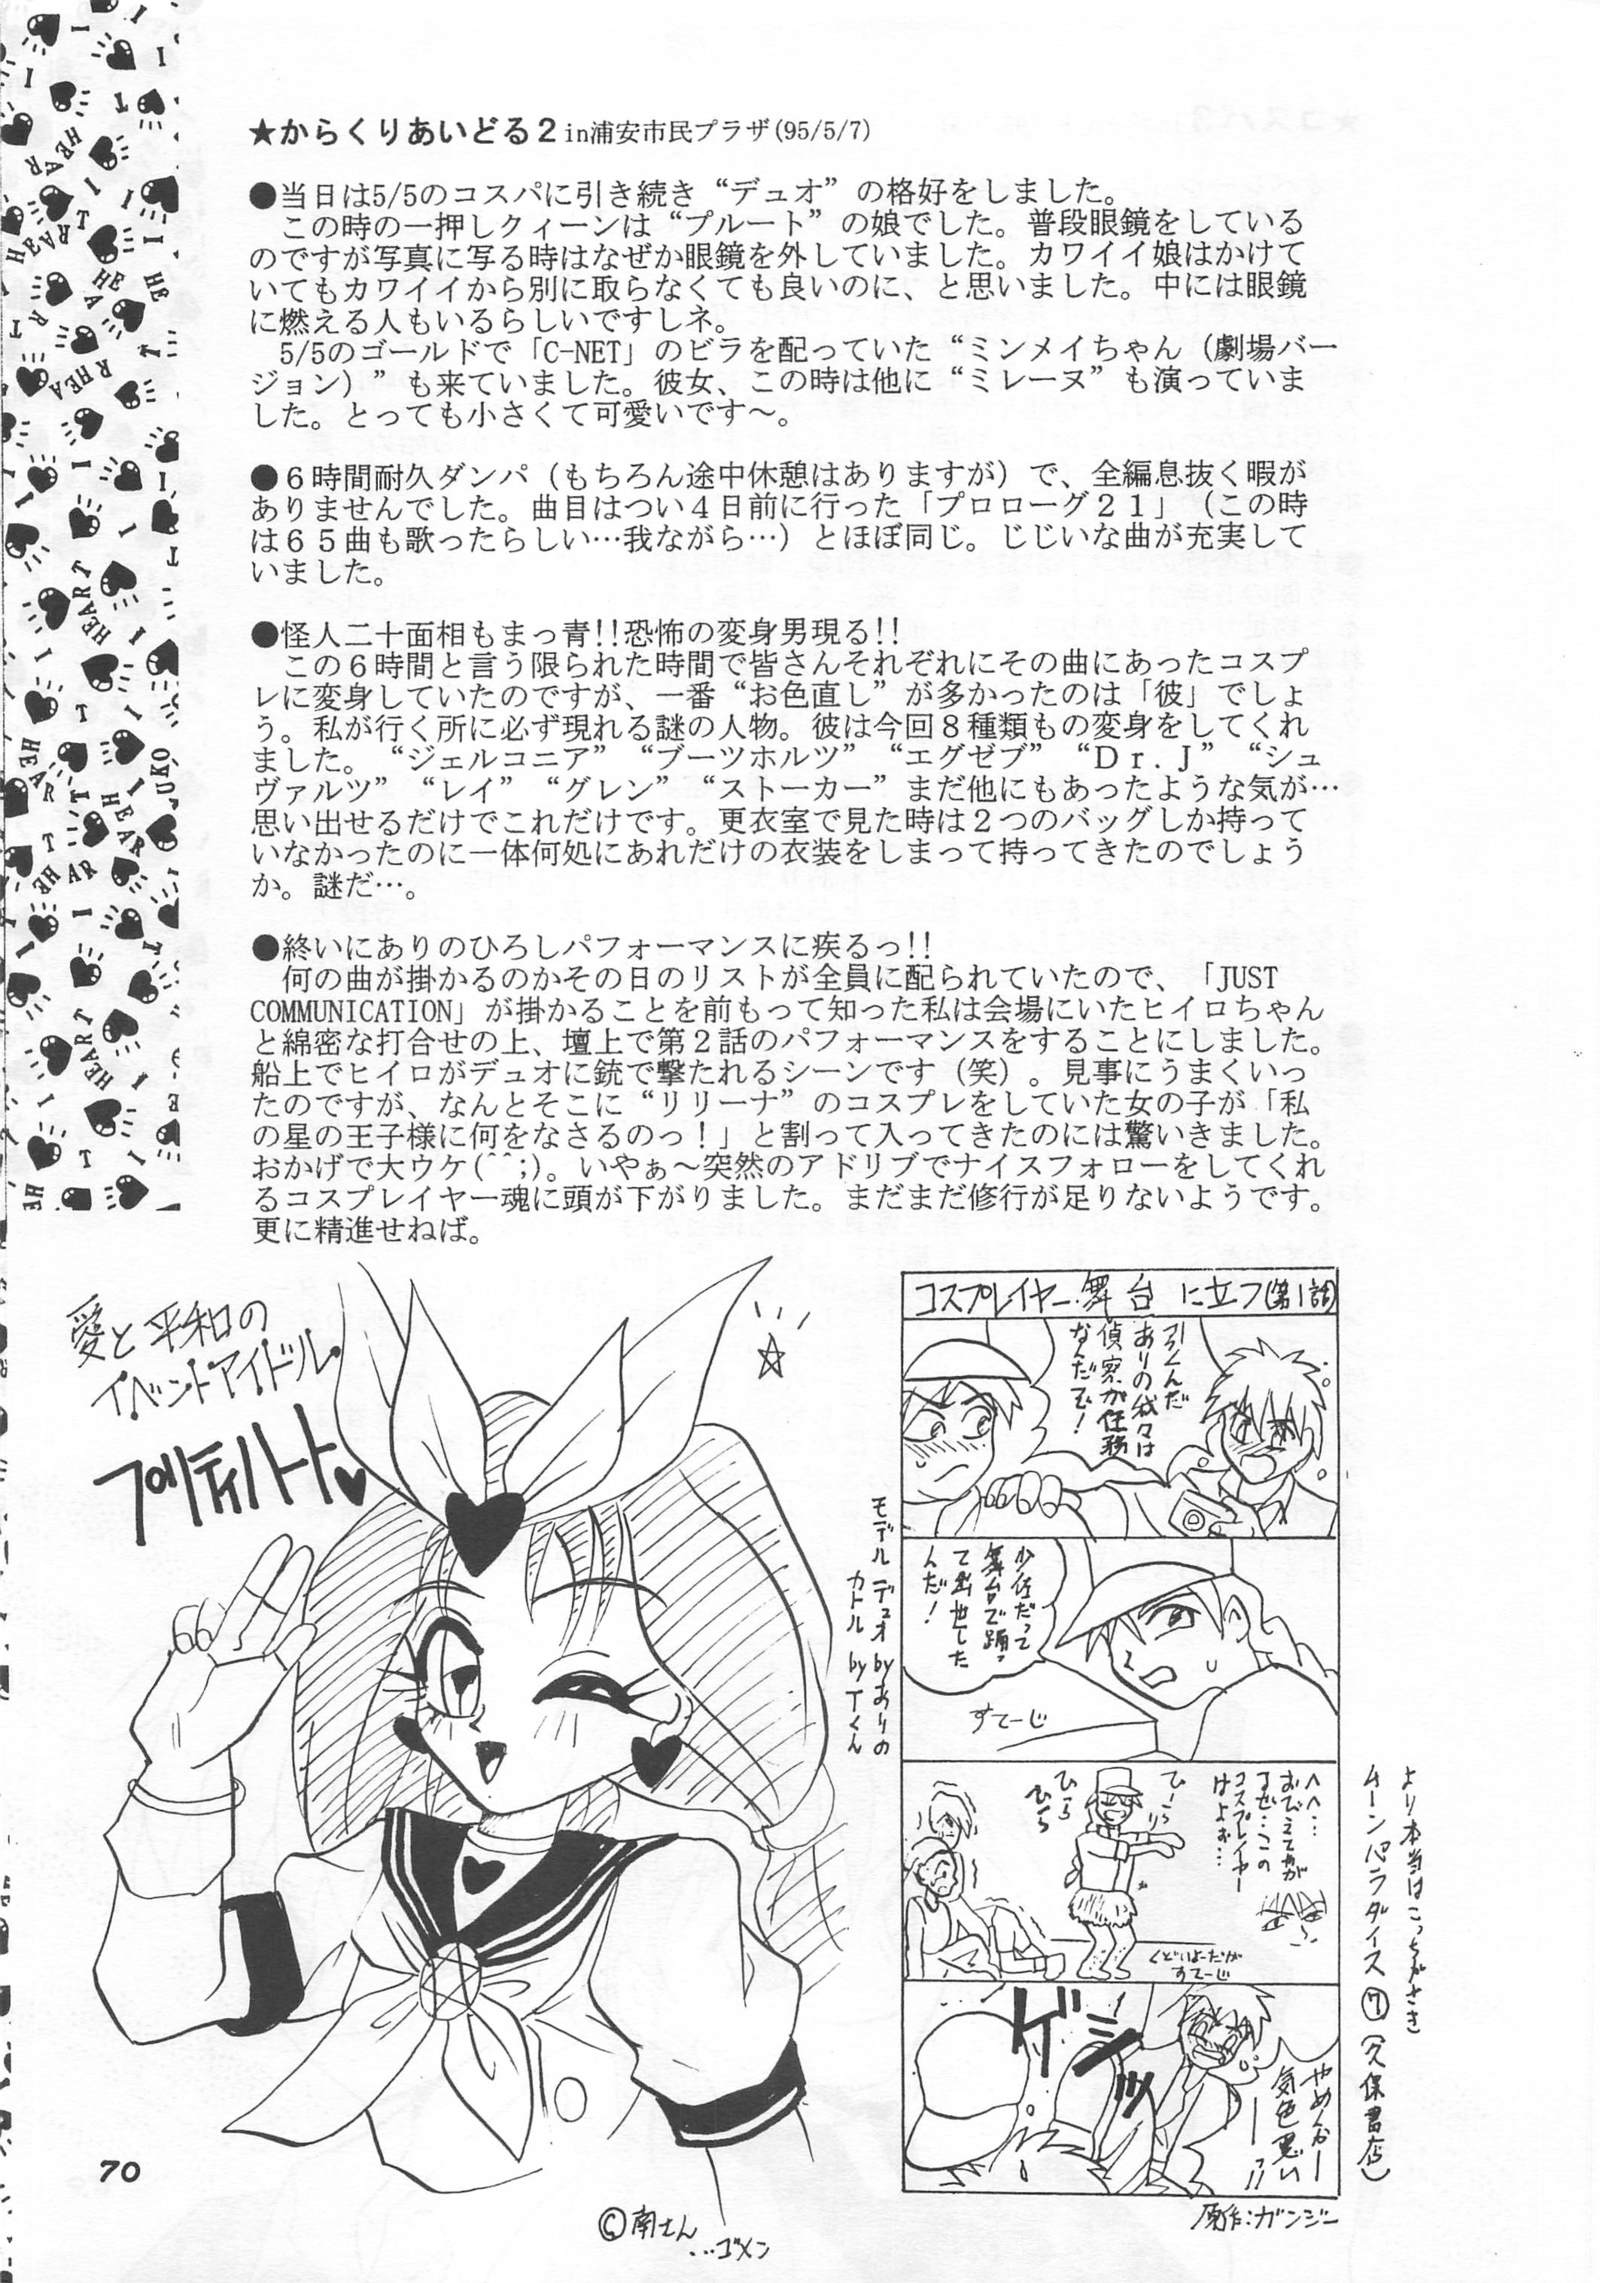 ★からくりあいどる２in浦安市民プラザ(95/5/7)
●当日は5/5のコスパに引き続き“デュオ”の格好をしました。
この時の一押しクィーンは“プルート”の娘でした。普段眼鏡をしている
のですが写真に写る時はなぜか眼鏡を外していました。カワイイ娘はかけて
いてもカワイイから別に取らなくても良いのに、と思いました。中には眼鏡
に燃える人もいるらしいですしネ。
5/5のゴールドで「C-NET」のビラを配っていた“ミンメイちゃん（劇場バー
ジョン）”も来ていました。彼女、この時は他に“ミレーヌ”も演っていま
した。とっても小さくて可愛いです〜。
●６時間耐久ダンパ（もちろん途中休憩はありますが）で、全編息抜く暇が
ありませんでした。曲目はつい４日前に行った「プロローグ２１」（この時
は６５曲も歌ったらしい…我ながら…）とほぼ同じ。じじいな曲が充実して
いました。
●怪人二十面相もまっ青!!恐怖の変身男現る!!
この６時間と言う限られた時間で皆さんそれぞれにその曲にあったコスプ
レに変身していたのですが、一番“お色直し”が多かったのは「彼」でしょ
う。私が行く所に必ず現れる謎の人物。彼は今回８種類もの変身をしてくれ
ました。“ジェルコニア”“ブーツホルツ”“エグゼブ”“Ｄｒ.Ｊ”“シュ
ヴァルツ”“レイ”“グレン”“ストーカー”まだ他にもあったような気が…
思い出せるだけでこれだけです。更衣室で見た時は２つのバッグしか持って
いなかったのに一体何処にあれだけの衣装をしまって持ってきたのでしょう
か。謎だ…。
●終いにありのひろしパフォーマンスに疾るっ!!
何の曲が掛かるのかその日のリストが全員に配られていたので、「JUST
COMMUNICATION」が掛かることを前もって知った私は会場にいたヒイロちゃん
と綿密な打合せの上、壇上で第２話のパフォーマンスをすることにしました。
船上でヒイロがデュオに銃で撃たれるシーンです（笑）。見事にうまくいっ
たのですが、なんとそこに“リリーナ”のコスプレをしていた女の子が「私
の星の王子様に何をなさるのっ！」と割って入ってきたのには驚いきました。
おかげで大ウケ(^^;)。いやぁ〜突然のアドリブでナイスフォローをしてくれ
るコスプレイヤー魂に頭が下がりました。まだまだ修行が足りないようです。
更に精進せねば。
愛と平和の
イベントアイドル
プリティハート♥
コスプレイヤー舞台に立つ(第1話)
引くんだ
ありの我々は
偵察が任務
なんだぞ！
モデル デュオ byありの
カトル by Tくん
少佐だって
舞台で踊っ
て出世した
んだ！
すてーじ
へへ…
おびえてやが
るぜ…この
コスプレイヤー
けよぉ…
ひーら
ひら
ひら
すてーじ
やめんかー
気色悪い
ー！！
ゲシッ
原作：ガンジー
より本当はこっちがさき
ムーンパラダイス⑦（久保書店）
©南さん
…ゴメン
70